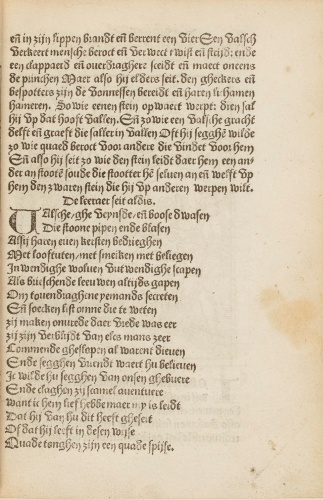 eñ in zijn lippen brandt eñ berrent een vier Een valsch
verkeert mensche beroet eñ verwect twist eñ strijd: ende
een clappaerd eñ overdraghere sceidt eñ maect onceus
de princhen Maer also hij elders seit. den gheckers eñ
bespotters zijn de vonnessen bereidt eñ haren lichamen
hameren. So wie eenen steen opwaert werpt: dien sal
hij vp dat hooft vallen. Eñ zo wie een valsche gracht
delft eñ graeft die sal ler in vallen Oft hij segghẽ wilde
zo wie quaed beroet voor andere die vindet voor hem
Eñ also hij seit zo wie den steen leidt daer hem een an-
der an stootẽ soude die stootter hẽ seluen an eñ welft vp
hem den zwaren steen die hij vp anderen werpen wilt.
De leeraer seit aldis.
Valsche/ghe veynsde/eñ boose dwasen
Die stoone pipen ende blasen
Alsij haren euen kersten bedrieghen
Met looftuten/met smeiken met beliegen
Inwendighe woluen vutwendighe scapen
Als brieschende leeuwen altijds gapen
Om touendraghene yemands secreten
Eñ soecken list omne die te weten
zij maken onurede daer vrede was eer
zij zijn verblijdt van eles mans zeer
Commende gheslopen al waernt dieuen
Ende segghẽ vriendt waert hu belieuen
Ic wilde hu segghẽ van onsen ghebuere
Ende claghen zij scamel auentuere
want ic hem lief hebbe maer my is leidt
Dat hij van hu dit heeft gheseit
Of dat hij leeft in desen wijse
Quade tonghen zijn een quade spijse.